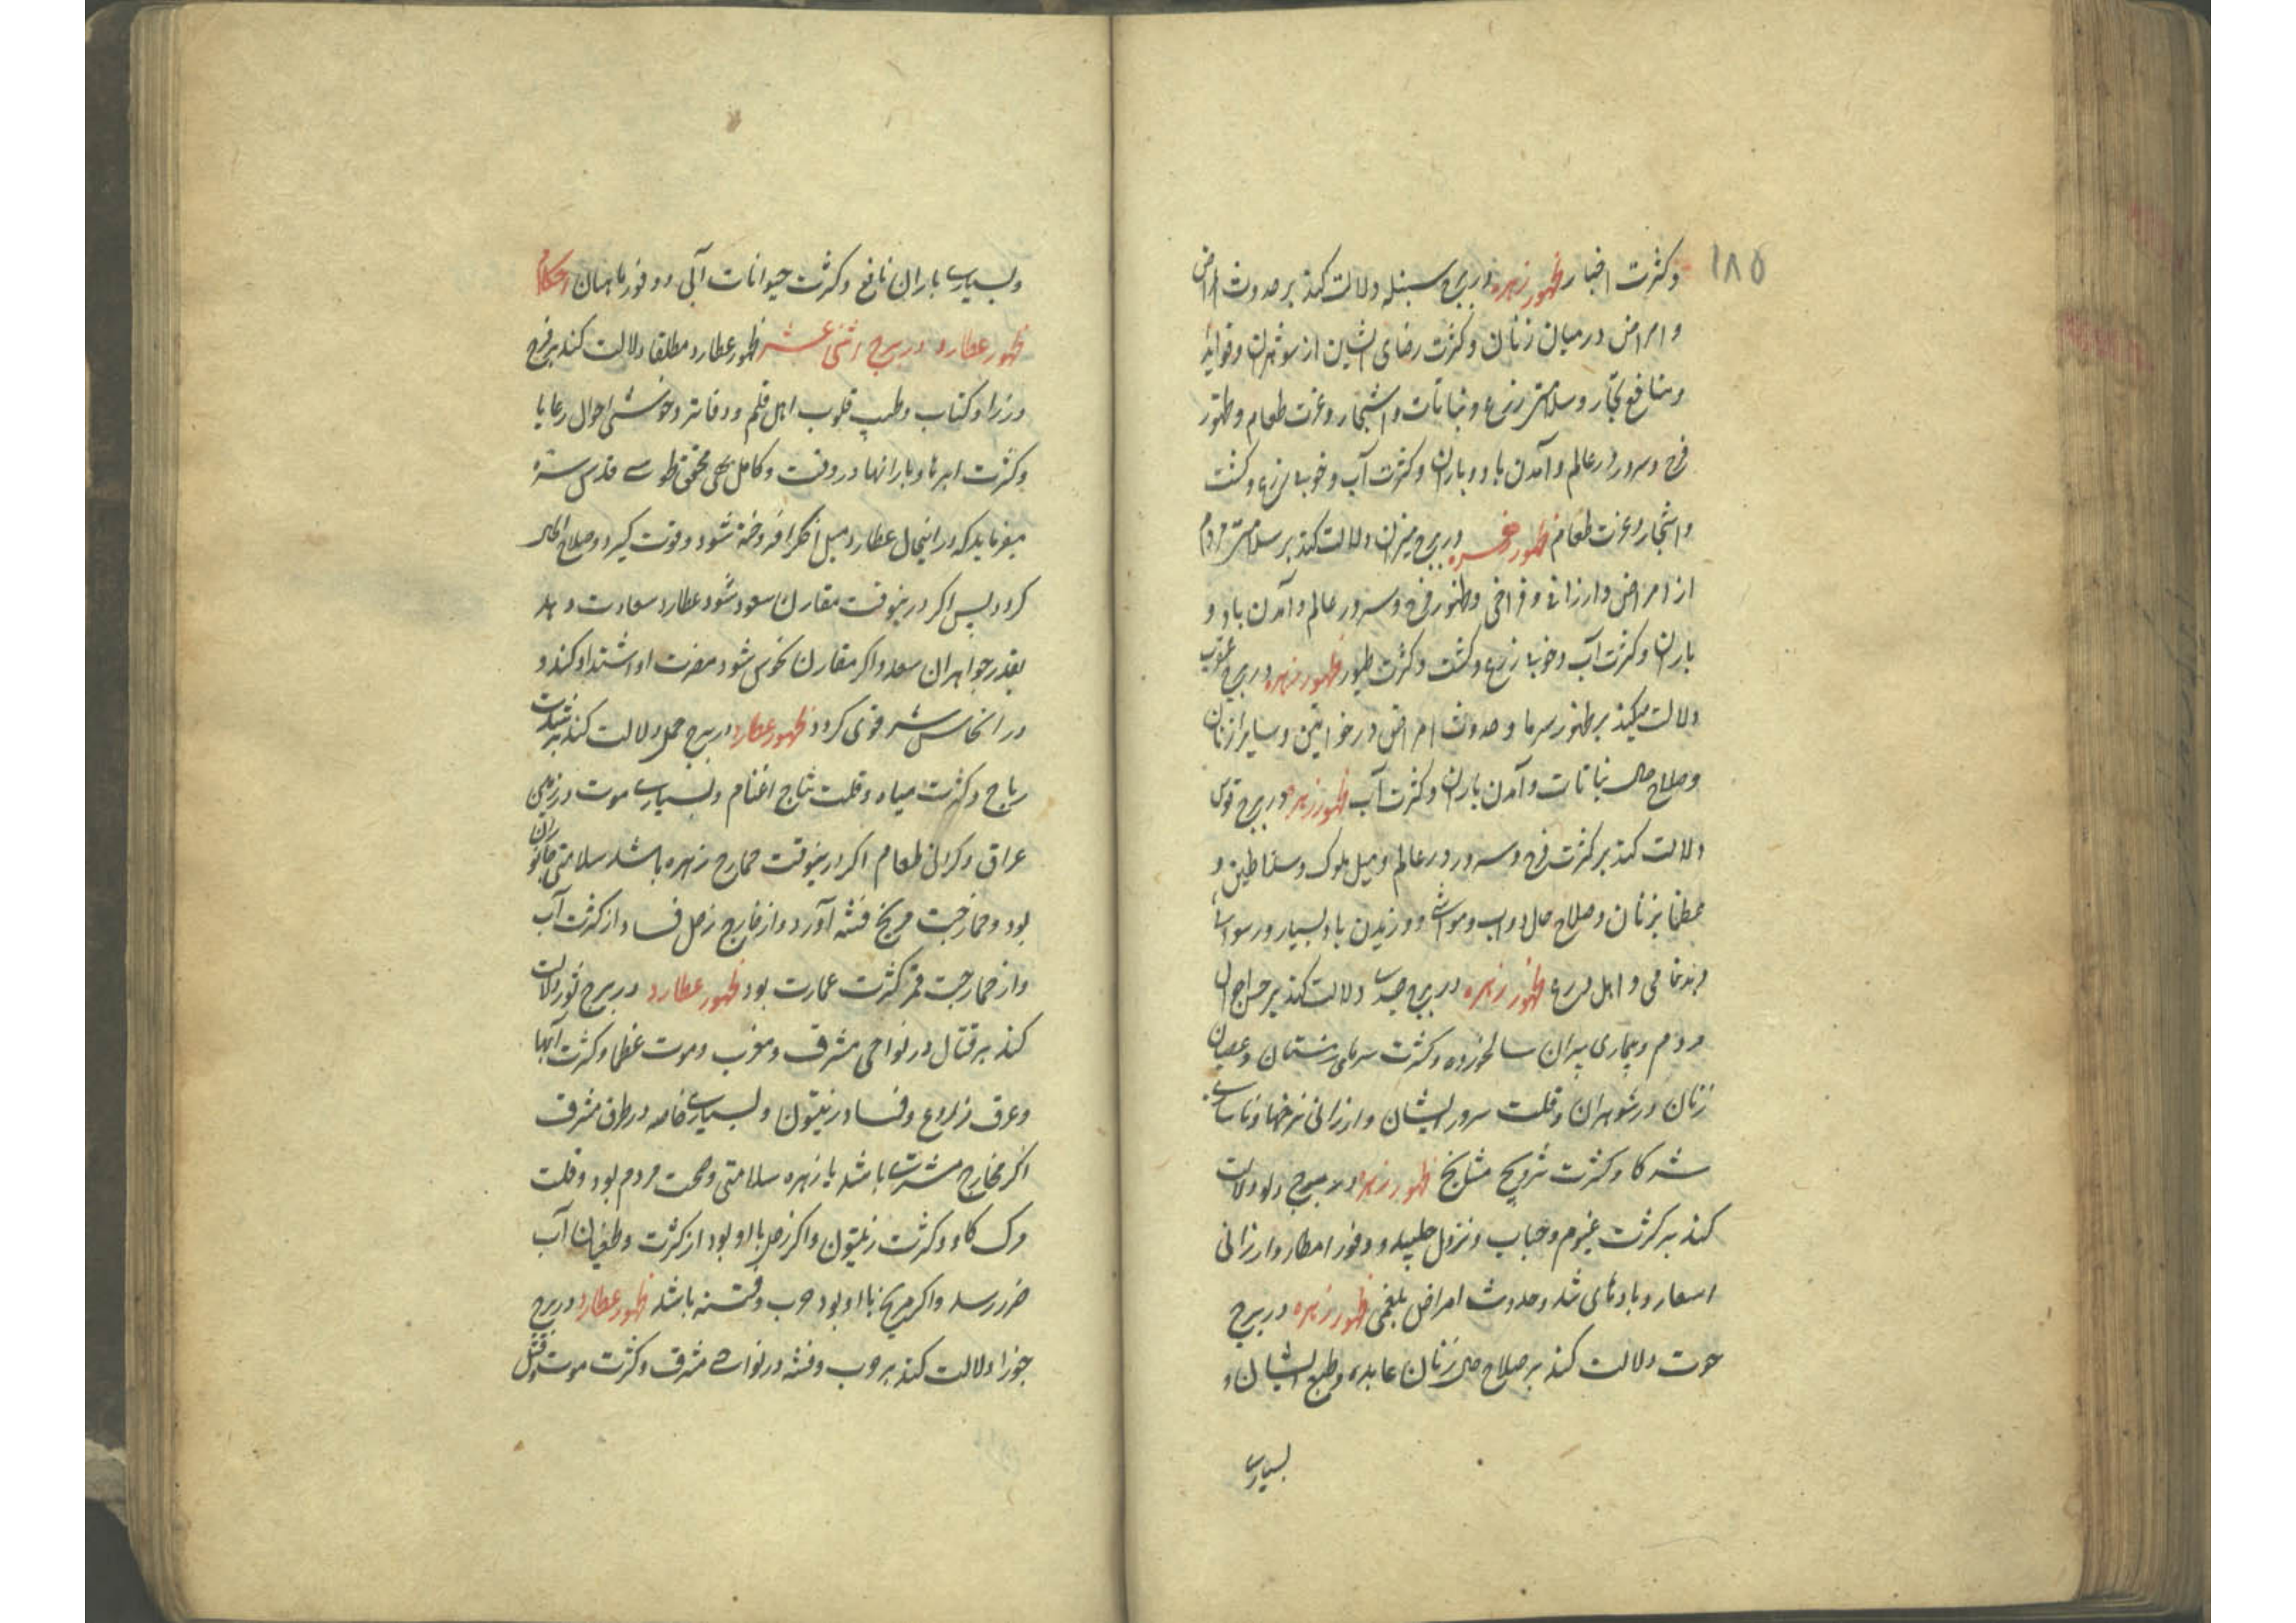 ۱۸۵
وکثرت اخبار ظهور زهره در برج سنبله دلالت کند بر حدوث امراض
و امراض در میان زنان و کثرت رضای ایشان از شوهران و فواید
و منافع تجار و سلامتی زرع و نباتات و اشجار و عزت طعام و ظهور
فرح و سرور در عالم و آمدن باد و باران و کثرت آب و خوبی زرع و کشت
و اشجار و عزت طعام ظهور زهره در برج میزان دلالت کند بر سلامتی مردم
از امراض و ارزانی و فراخی و ظهور فرح و سرور عالم و آمدن باد و
باران و کثرت آب و خوبی زرع و کشت و کثرت طیور ظهور زهره در برج عقرب
دلالت میکند بر ظهور سرما و حدوث امراض در خواتین و سایر زنان
و صلاح حال نباتات و آمدن باران و کثرت آب ظهور زهره در برج قوس
دلالت کند بر کثرت فرح و سرور در عالم و میل ملوک و سلاطین و
عظما بزنان و صلاح حال دواب و مواشی و وزیدن باد بسیار و رسوا
و بدنامی و اهل ظهور زهره در برج جدی دلالت کند بر احوال
مردم و بیماری پیران سالخورده و کثرت سرمای زمستان و عصیان
زنان در شوهران و قلت سرور ایشان و ارزانی نرخها و
شرکا و کثرت تزویج مشایخ ظهور زهره در برج دلو دلالت
کند بر کثرت غیوم و حباب و نزول جلید و وفور امطار و ارزانی
اسعار و بادهای شد و حدوث امراض بلغمی ظهور زهره در برج
حوت دلالت کند بر صلاح حال زنان عابده و طبع ایشان و
بسیاری
وبسیاری باران نافع و کثرت حیوانات آبی و وفور ماهیان احکام
ظهور عطارد در برج اثنی عشر ظهور عطارد مطلقا دلالت کند بر فرح
وزرا و کتاب و طیب قلوب اهل قلم و دفاتر و خوشی احوال رعایا
و کثرت ابرها و بارانها در وقت و کامل محقق طوسی قدس سره
میفرماید که در اینحال عطارد مثل اخگر افروخته شود و قوت گیرد و صلاح
گردد پس اگر درینوقت مقارن سعود شود عطارد سعادت دهد
بقدر جواهران سعد و اگر مقارن نحوس شود مضرت او اشتداد کند و
در انحاس شر قوی گردد ظهور عطارد در برج حمل دلالت کند بر شدت
ریاح و کثرت میاه و قلت نتاج اغنام و بسیاری موت در زمین
عراق و گرانی طعام اگر درینوقت ممازج زهره باشد سلامتی جانوران
بود و ممازجت مریخ فتنه آورد و از مازج زحل فساد از کثرت آب
و از ممازجت قمر کثرت عمارت بود ظهور عطارد در برج ثور دلالت
کند بر قتال در نواحی مشرق و مغرب و موت عظما و کثرت آبها
و غرق زروع و فساد زیتون و بسیاری خاصه در طرف مشرق
اگر ممازج مشتری باشد یا زهره سلامتی و صحت مردم بود و قلت
مرگ گاو و کثرت زیتون و اگر زحل با او بود از کثرت و طغیان آب
ضرر رسد و اگر مریخ با او بود حرب و فتنه باشد ظهور عطارد در برج
جوزا دلالت کند بر حرب و فتنه در نواحی مشرق و کثرت موت و قتل